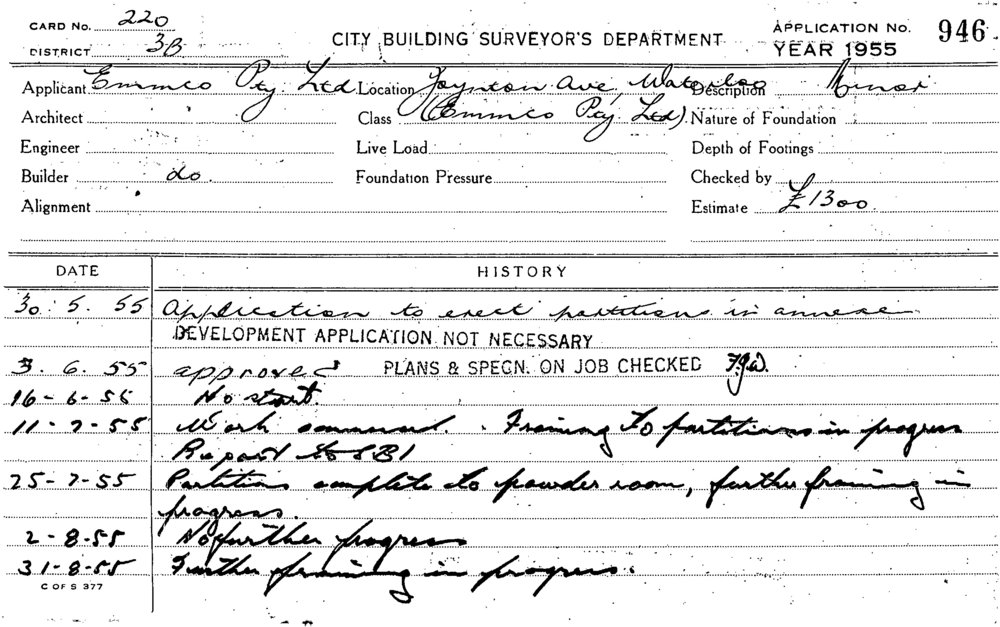 CARD No. 220
DISTRICT 3B
CITY BUILDING SURVEYOR'S DEPARTMENT
APPLICATION No. 946
YEAR 1955
Applicant Emmco Pty. Ltd Location Joynton Ave, Waterloo Description Minor
Architect Class (Emmco Pty Ltd). Nature of Foundation
Engineer Live Load Depth of Footings
Builder do. Foundation Pressure Checked by
Alignment Estimate £1300.
DATE HISTORY
30.5.55 Application to erect partitions in annexe
DEVELOPMENT APPLICATION NOT NECESSARY
3.6.55 approved PLANS & SPECN. ON JOB CHECKED
16-6-55 No start.
11-7-55 Work commenced. Framing to partitions in progress
Report to SBI
25-7-55 Partitions complete to powder room, further framing in
progress.
2-8-55 No further progress
31-8-55 Further framing in progress.
C OF S 377